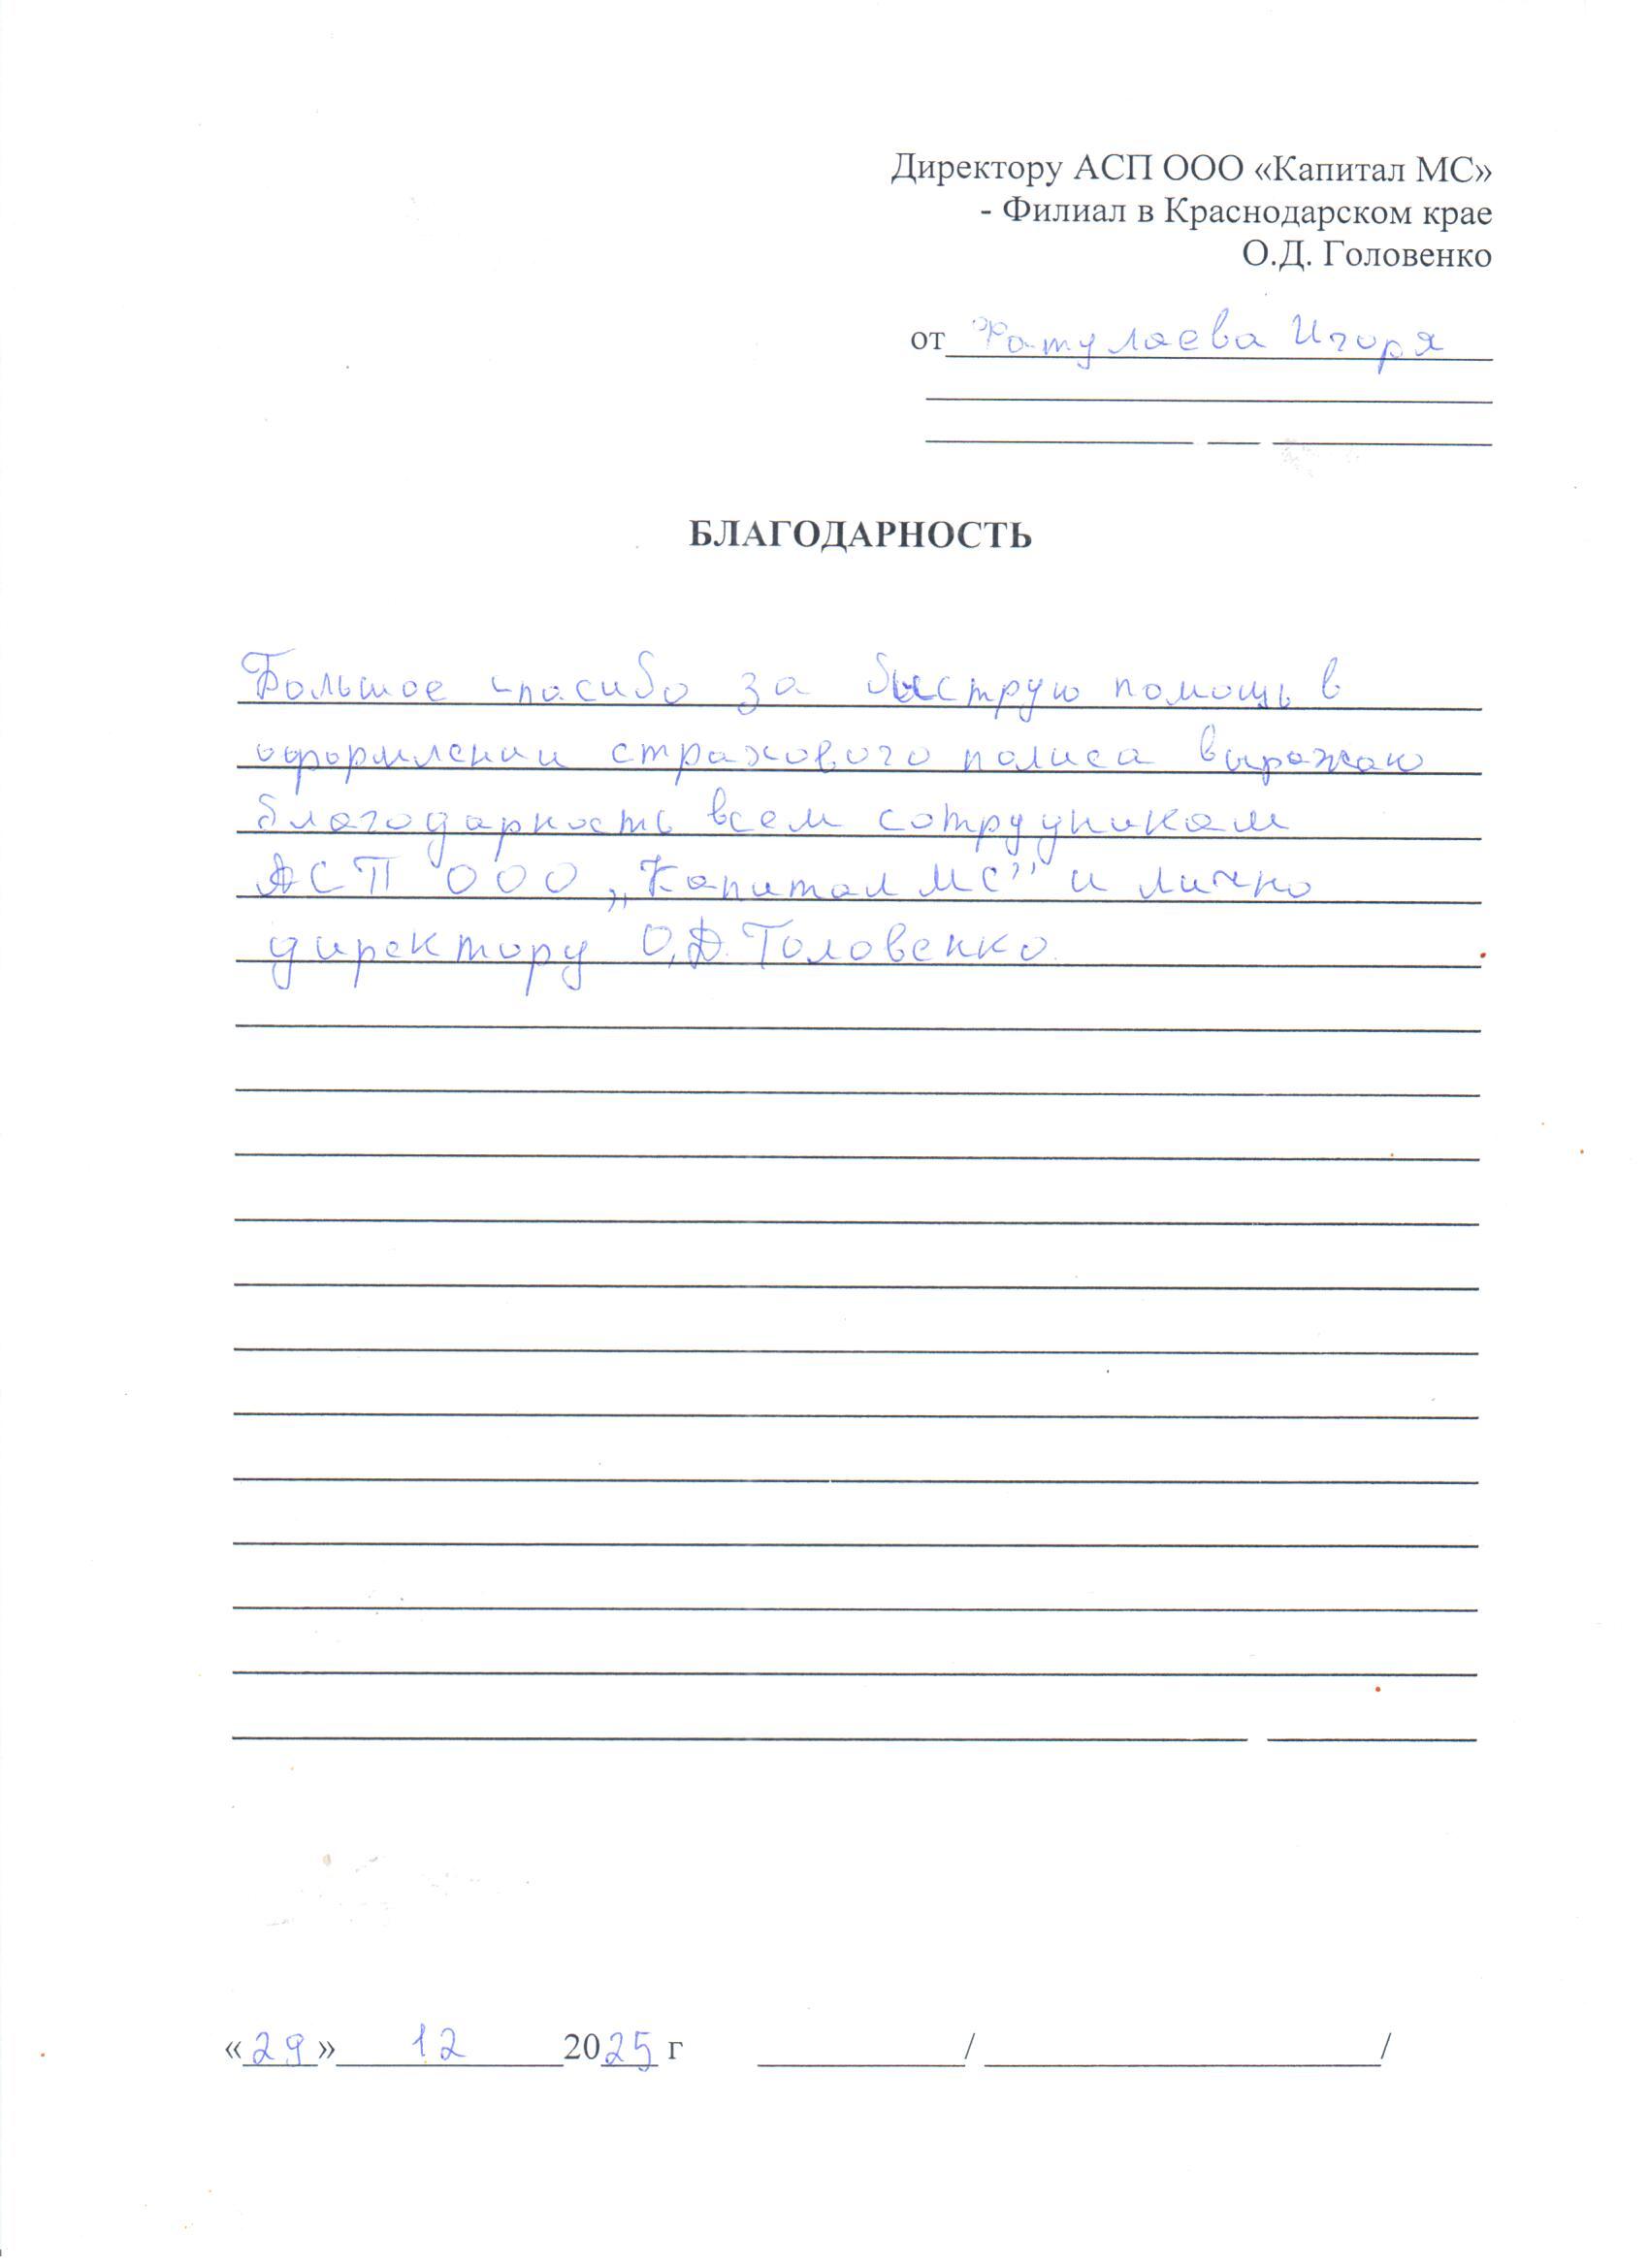 Директору АСП ООО «Капитал МС»
- Филиал в Краснодарском крае
О.Д. Головенко
от Фатулаева Игоря
БЛАГОДАРНОСТЬ
Большое спасибо за быструю помощь в
оформлении страхового полиса выражаю
благодарность всем сотрудникам
АСП ООО „Капитал МС” и лично
директору О.Д. Головенко.
«29» 12 2025 г / /